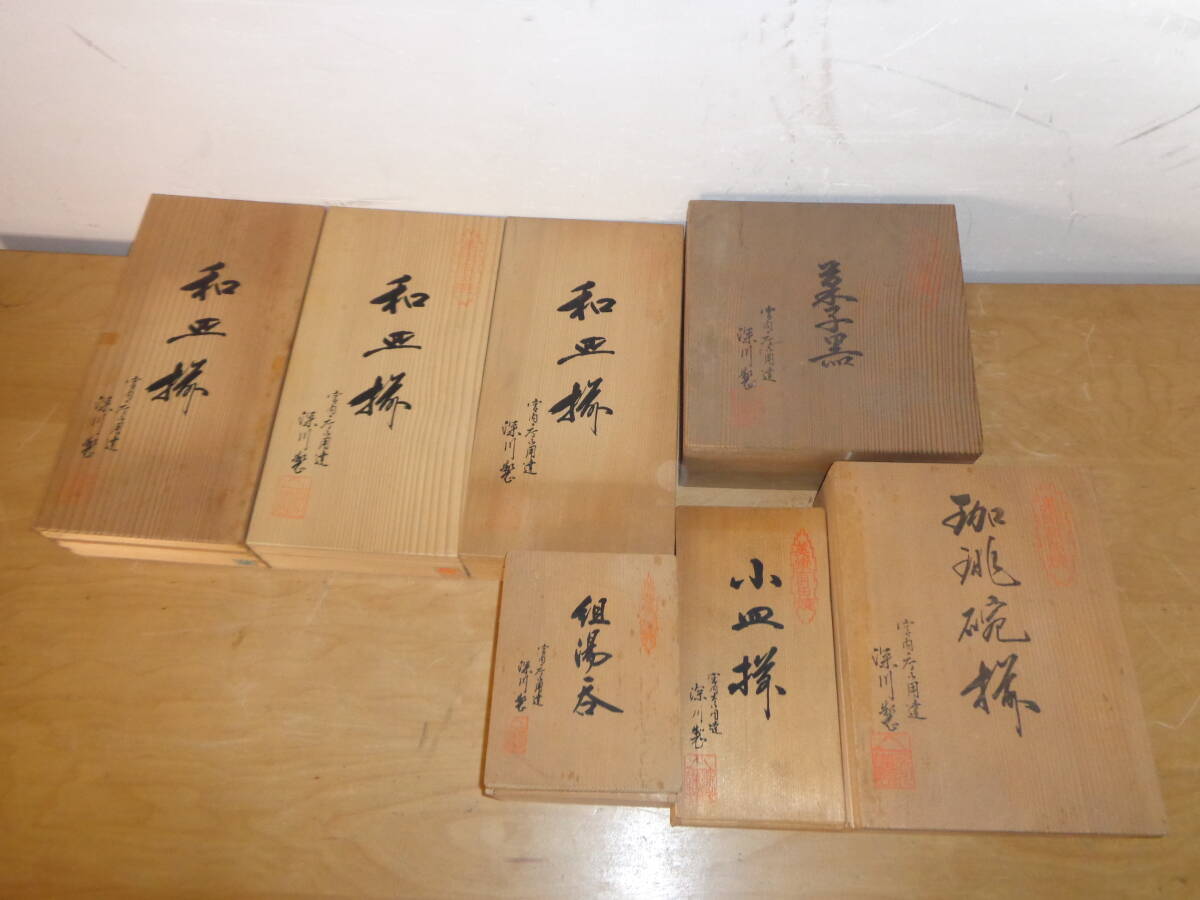 和皿揃
宮内庁御用達
深川製
和皿揃
宮内庁御用達
深川製
和皿揃
宮内庁御用達
深川製
菓子器
宮内庁御用達
深川製
組湯呑
宮内庁御用達
深川製
小皿揃
宮内庁御用達
深川製
珈琲碗揃
宮内庁御用達
深川製